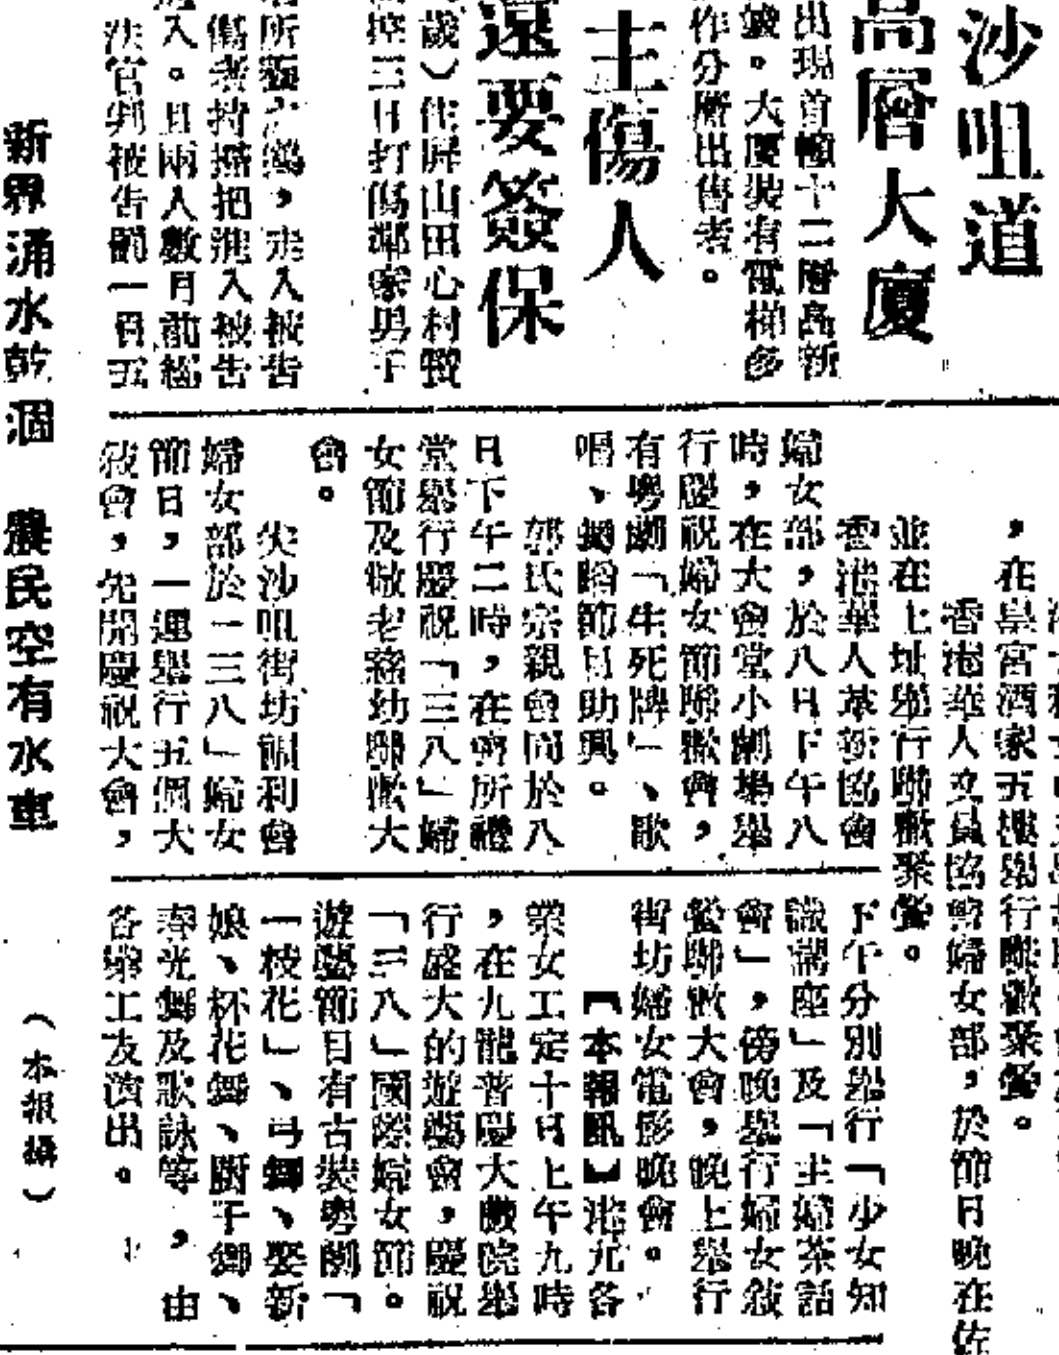 沙咀道
高層大廈
出現首幢十二層高新
。大廈裝有電梯多
作分層出售者。
主傷人
還要簽保
歲）住屏山田心村
控三日打傷鄰家男子
，走入被告
傷者持 把 入被告
入。且兩人數月前
法官判被告 一 五
，在皇宮酒家五樓舉行聯歡聚餐。
香港華人文員協會婦女部，於節日晚在佐
並在上址舉行聯歡聚餐。
香港華人革新協會
婦女部，於八日下午八
時，在大會堂小劇場舉
行慶祝婦女節聯歡會，
有粵劇「生死牌」、歌
唱、舞蹈節目助興。
郭氏宗親會同於八
日下午二時，在會所禮
堂舉行慶祝「三八」婦
女節及敬老慈幼聯歡大
會。
尖沙咀街坊福利會
婦女部於「三八」婦女
節日，一連舉行五個大
敍會，先開慶祝大會，
下午分別舉行「少女知
識講座」及「主婦茶話
會」，傍晚舉行婦女敍
餐聯歡大會，晚上舉行
街坊婦女電影晚會。
【本報訊】港九各
業女工定十日上午九時
，在九龍普慶大戲院舉
行盛大的遊藝會，慶祝
「三八」國際婦女節。
遊藝節目有古裝粵劇「
一枝花」、弓舞、娶新
娘、杯花舞、 舞、
春光舞及歌詠等，由
各業工友演出。
新界涌水乾涸　農民空有水車
（本報攝）